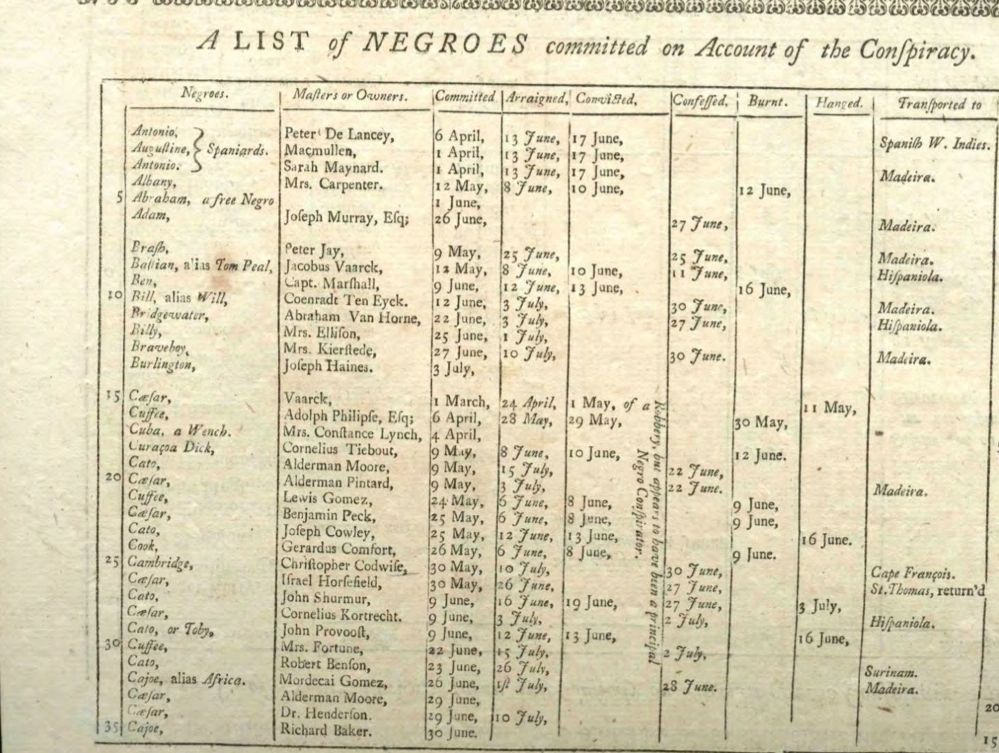 A LIST of NEGROES committed on Account of the Conſpiracy.
Negroes. Maſters or Owners. Committed Arraigned, Convicted, Confeſſed, Burnt. Hanged. Tranſported to
Antonio, Peter De Lancey, 6 April, 13 June, 17 June, Spaniſh W. Indies.
Auguſtine, Spaniards. Macmullen, 1 April, 13 June, 17 June,
Antonio. Sarah Maynard. 1 April, 13 June, 17 June, Madeira.
Albany, Mrs. Carpenter. 12 May, 8 June, 10 June, 12 June,
5 Abraham, a free Negro 1 June,
Adam, Joſeph Murray, Eſq; 26 June, 27 June, Madeira.
Braſh, Peter Jay, 9 May, 25 June, 25 June, Madeira.
Baſtian, alias Tom Peal, Jacobus Vaarck, 12 May, 8 June, 10 June, 11 June, Hiſpaniola.
Ben, Capt. Marſhall, 9 June, 12 June, 13 June, 16 June,
10 Bill, alias Will, Coenradt Ten Eyck. 12 June, 3 July, 30 June, Madeira.
Bridgewater, Abraham Van Horne, 22 June, 3 July, 27 June, Hiſpaniola.
Billy, Mrs. Elliſon, 25 June, 1 July,
Braveboy, Mrs. Kierſtede, 27 June, 10 July, 30 June. Madeira.
Burlington, Joſeph Haines. 3 July,
15 Cæſar, Vaarck, 1 March, 24 April, 1 May, of a Robbery, but appears to have been a principal Negro Conſpirator. 11 May,
Cuffee, Adolph Philipſe, Eſq; 6 April, 28 May, 29 May, 30 May,
Cuba, a Wench. Mrs. Conſtance Lynch, 4 April,
Curaçoa Dick, Cornelius Tiebout, 9 May, 8 June, 10 June, 12 June.
Cato, Alderman Moore, 9 May, 15 July, 22 June,
20 Cæſar, Alderman Pintard, 9 May, 3 July, 22 June. Madeira.
Cuffee, Lewis Gomez, 24 May, 6 June, 8 June, 9 June,
Cæſar, Benjamin Peck, 25 May, 6 June, 8 June, 9 June,
Cato, Joſeph Cowley, 25 May, 12 June, 13 June, 16 June.
Cook, Gerardus Comfort, 26 May, 6 June, 8 June, 9 June.
25 Cambridge, Chriſtopher Codwiſe, 30 May, 10 July, 30 June, Cape François.
Cæſar, Iſrael Horſefield, 30 May, 26 June, 27 June, St. Thomas, return'd
Cato, John Shurmur, 9 June, 16 June, 19 June, 27 June, 3 July,
Cæſar, Cornelius Kortrecht. 9 June, 3 July, 2 July, Hiſpaniola.
Cato, or Toby, John Provooſt, 9 June, 12 June, 13 June, 16 June,
30 Cuffee, Mrs. Fortune, 22 June, 15 July, 2 July,
Cato, Robert Benſon, 23 June, 26 July, Surinam.
Cajoe, alias Africa. Mordecai Gomez, 26 June, 1ſt July, 28 June. Madeira.
Cæſar, Alderman Moore, 29 June,
Cæſar, Dr. Henderſon. 29 June, 10 July, 20
35 Cajoe, Richard Baker. 30 June. 15